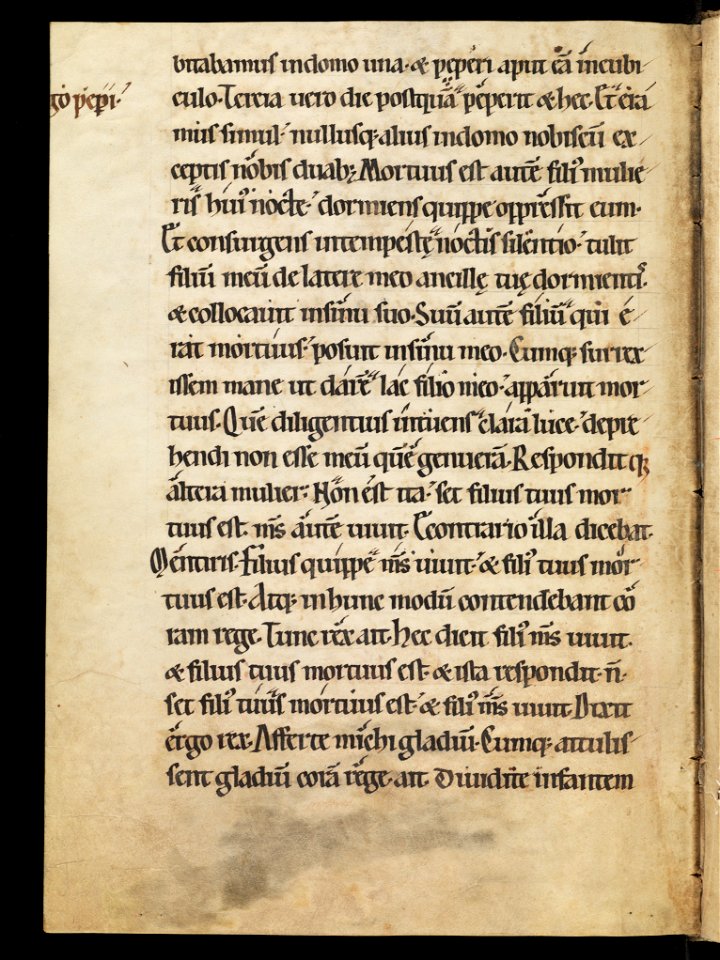 gó pep̄i.
bitabamus in domo una. & peperi aput eā in cubi
culo. Tercia uero die postquā peperit & hec. Et erā
mus simul. nullusq; alius in domo nobiscū ex
ceptis nobis duab;. Mortuus est autē fili' mulie
ris hui' nocte. dormiens quippe oppressit eum.
Et consurgens intempestę noctis silentio. tulit
filiū meū de latere meo ancillę tuę dormient'.
& collocauit in sinu suo. Suū autē filiū qui e
rat mortuus. posuit in sinu meo. Cumq; surrex
issem mane ut darē lac filio meo. apparuit mor
tuus. Quē diligentius intuens clara luce. depre
hendi non esse meū quē genuerā. Respondit q;
altera mulier. Non est ita. set filius tuus mor
tuus est. m̄s autē uiuit. Econtrario illa dicebat.
Mentiris. Filius quippe m̄s uiuit. & fili' tuus mor
tuus est. Atq; in hunc modū contendebant co
ram rege. Tunc rex ait. Hec dicit fili' m̄s uiuit.
& filius tuus mortuus est. & ista respondit. n̄.
set fili' tuus mortuus est. & fili' m̄s uiuit. Dixit
ergo rex. Afferte michi gladiū. Cumq; attulis
sent gladiū corā rege. ait. Diuidite infantem